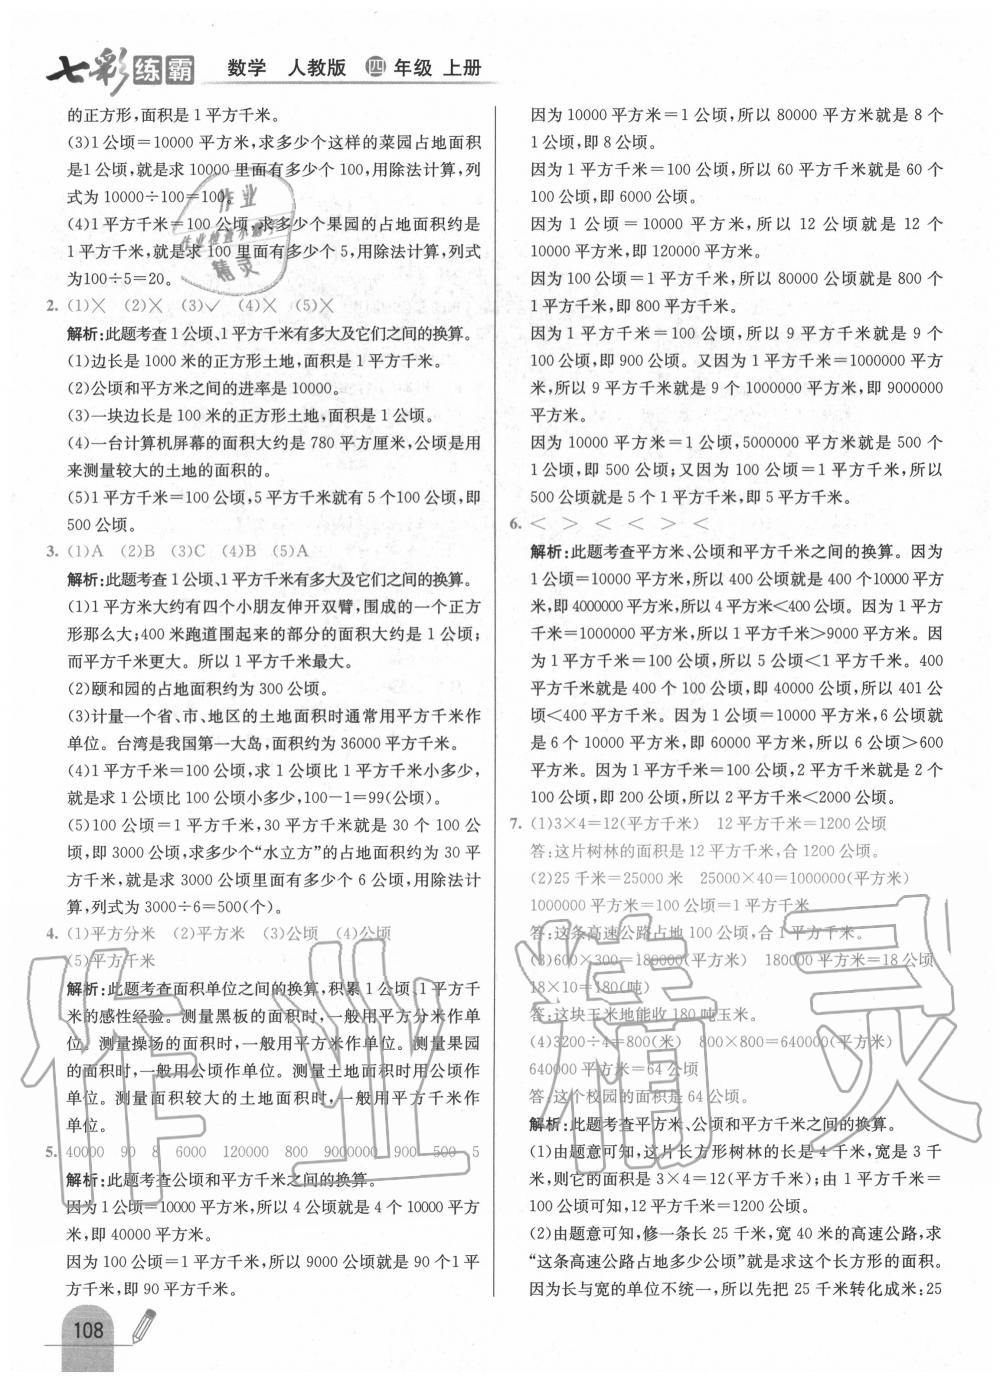 七彩练霸 数学 人教版 四 年级 上册
的正方形,面积是 1 平方千米。
(3)1 公顷=10000 平方米,求多少个这样的菜园占地面积
是1 公顷,就是求 10000 里面有多少个 100,用除法计算,列
式为 10000÷100=100。
(4)1 平方千米=100 公顷,求多少个果园的占地面积约是
1 平方千米,就是求 100 里面有多少个 5,用除法计算,列式
为100÷5=20。
2. (1)✕ (2)✕ (3)✓ (4)✕ (5)✕
解析:此题考查 1 公顷、1 平方千米有多大及它们之间的换算。
(1)边长是 1000 米的正方形土地,面积是 1 平方千米。
(2)公顷和平方米之间的进率是 10000。
(3)一块边长是 100 米的正方形土地,面积是 1 公顷。
(4)一台计算机屏幕的面积大约是 780 平方厘米,公顷是用
来测量较大的土地的面积的。
(5)1 平方千米=100 公顷,5 平方千米就有 5 个100 公顷,即
500 公顷。
3. (1)A (2)B (3)C (4)B (5)A
解析:此题考查 1 公顷、1 平方千米有多大及它们之间的换算。
(1)1 平方米大约有四个小朋友伸开双臂,围成的一个正方
形那么大;400 米跑道围起来的部分的面积大约是 1 公顷;
而平方千米更大。所以 1 平方千米最大。
(2)颐和园的占地面积约为 300 公顷。
(3)计量一个省、市、地区的土地面积时通常用平方千米作
单位。台湾是我国第一大岛,面积约为 36000 平方千米。
(4)1 平方千米=100 公顷,求 1 公顷比 1 平方千米小多少,
就是求 1 公顷比 100 公顷小多少,100-1=99(公顷)。
(5)100 公顷=1 平方千米,30 平方千米就是 30 个 100 公
顷,即 3000 公顷,求多少个“水立方”的占地面积约为 30 平
方千米,就是求 3000 公顷里面有多少个 6 公顷,用除法计
算,列式为 3000÷6=500(个)。
4. (1)平方分米 (2)平方米 (3)公顷 (4)公顷
(5)平方千米
解析:此题考查面积单位之间的换算,积累 1 公顷、1 平方千
米的感性经验。测量黑板的面积时,一般用平方分米作单
位。测量操场的面积时,一般用平方米作单位。测量果园
的面积时,一般用公顷作单位。测量土地面积时用公顷作
单位。测量面积较大的土地面积时,一般用平方千米作单
位。
5. 40000 90 8 6000 120000 800 9000000 900 500 5
解析:此题考查公顷和平方千米之间的换算。
因为 1 公顷=10000 平方米,所以 4 公顷就是 4 个 10000 平方
米,即 40000 平方米。
因为 100 公顷=1 平方千米,所以 9000 公顷就是 90 个1 平
方千米,即 90 平方千米。
因为 10000 平方米=1 公顷,所以 80000 平方米就是 8 个
1 公顷,即 8 公顷。
因为 1 平方千米=100 公顷,所以 60 平方千米就是 60 个
100 公顷,即 6000 公顷。
因为 1 公顷=10000 平方米,所以 12 公顷就是 12 个
10000 平方米,即 120000 平方米。
因为 100 公顷=1 平方千米,所以 80000 公顷就是 800 个
1 平方千米,即 800 平方千米。
因为 1 平方千米=100 公顷,所以 9 平方千米就是 9 个
100 公顷,即 900 公顷。又因为 1 平方千米=1000000 平方
米,所以 9 平方千米就是 9 个 1000000 平方米,即 9000000
平方米。
因为 10000 平方米=1 公顷,5000000 平方米就是 500 个
1 公顷,即 500 公顷;又因为 100 公顷=1 平方千米,所以
500 公顷就是 5 个 1 平方千米,即 5 平方千米。
6. < > < < > <
解析:此题考查平方米、公顷和平方千米之间的换算。因为
1 公顷=10000 平方米,所以 400 公顷就是 400 个10000 平方
米,即 4000000 平方米,所以 4 平方米<400 公顷。因为 1 平方
千米=1000000 平方米,所以 1 平方千米>9000 平方米。因
为 1 平方千米=100 公顷,所以 5 公顷<1 平方千米。400
平方千米就是 400 个 100 公顷,即 40000 公顷,所以 401 公
顷<400 平方千米。因为 1 公顷=10000 平方米,6 公顷就
是 6 个 10000 平方米,即 60000 平方米,所以 6 公顷>600
平方米。因为 1 平方千米=100 公顷,2 平方千米就是 2 个
100 公顷,即 200 公顷,所以 2 平方千米<2000 公顷。
7. (1)3×4=12(平方千米) 12 平方千米=1200 公顷
答:这片树林的面积是 12 平方千米,合 1200 公顷。
(2)25 千米=25000 米 25000×40=1000000(平方米)
1000000 平方米=100 公顷=1 平方千米
答:这条高速公路占地 100 公顷,合 1 平方千米。
(3)600×300=180000(平方米) 180000 平方米=18 公顷
18×10=180(吨)
答:这块玉米地能收 180 吨玉米。
(4)3200÷4=800(米) 800×800=640000(平方米)
640000 平方米=64 公顷
答:这个校园的面积是 64 公顷。
解析:此题考查平方米、公顷和平方千米之间的换算。
(1)由题意可知,这片长方形树林的长是 4 千米,宽是 3 千
米,则它的面积是 3×4=12(平方千米);由 1 平方千米=
100 公顷可知,12 平方千米=1200 公顷。
(2)由题意可知,修一条长 25 千米,宽 40 米的高速公路,求
“这条高速公路占地多少公顷”就是求这个长方形的面积。
因为长与宽的单位不统一,所以先把 25 千米转化成米:25
108
作业
作业检查小助手
精灵
作业精灵